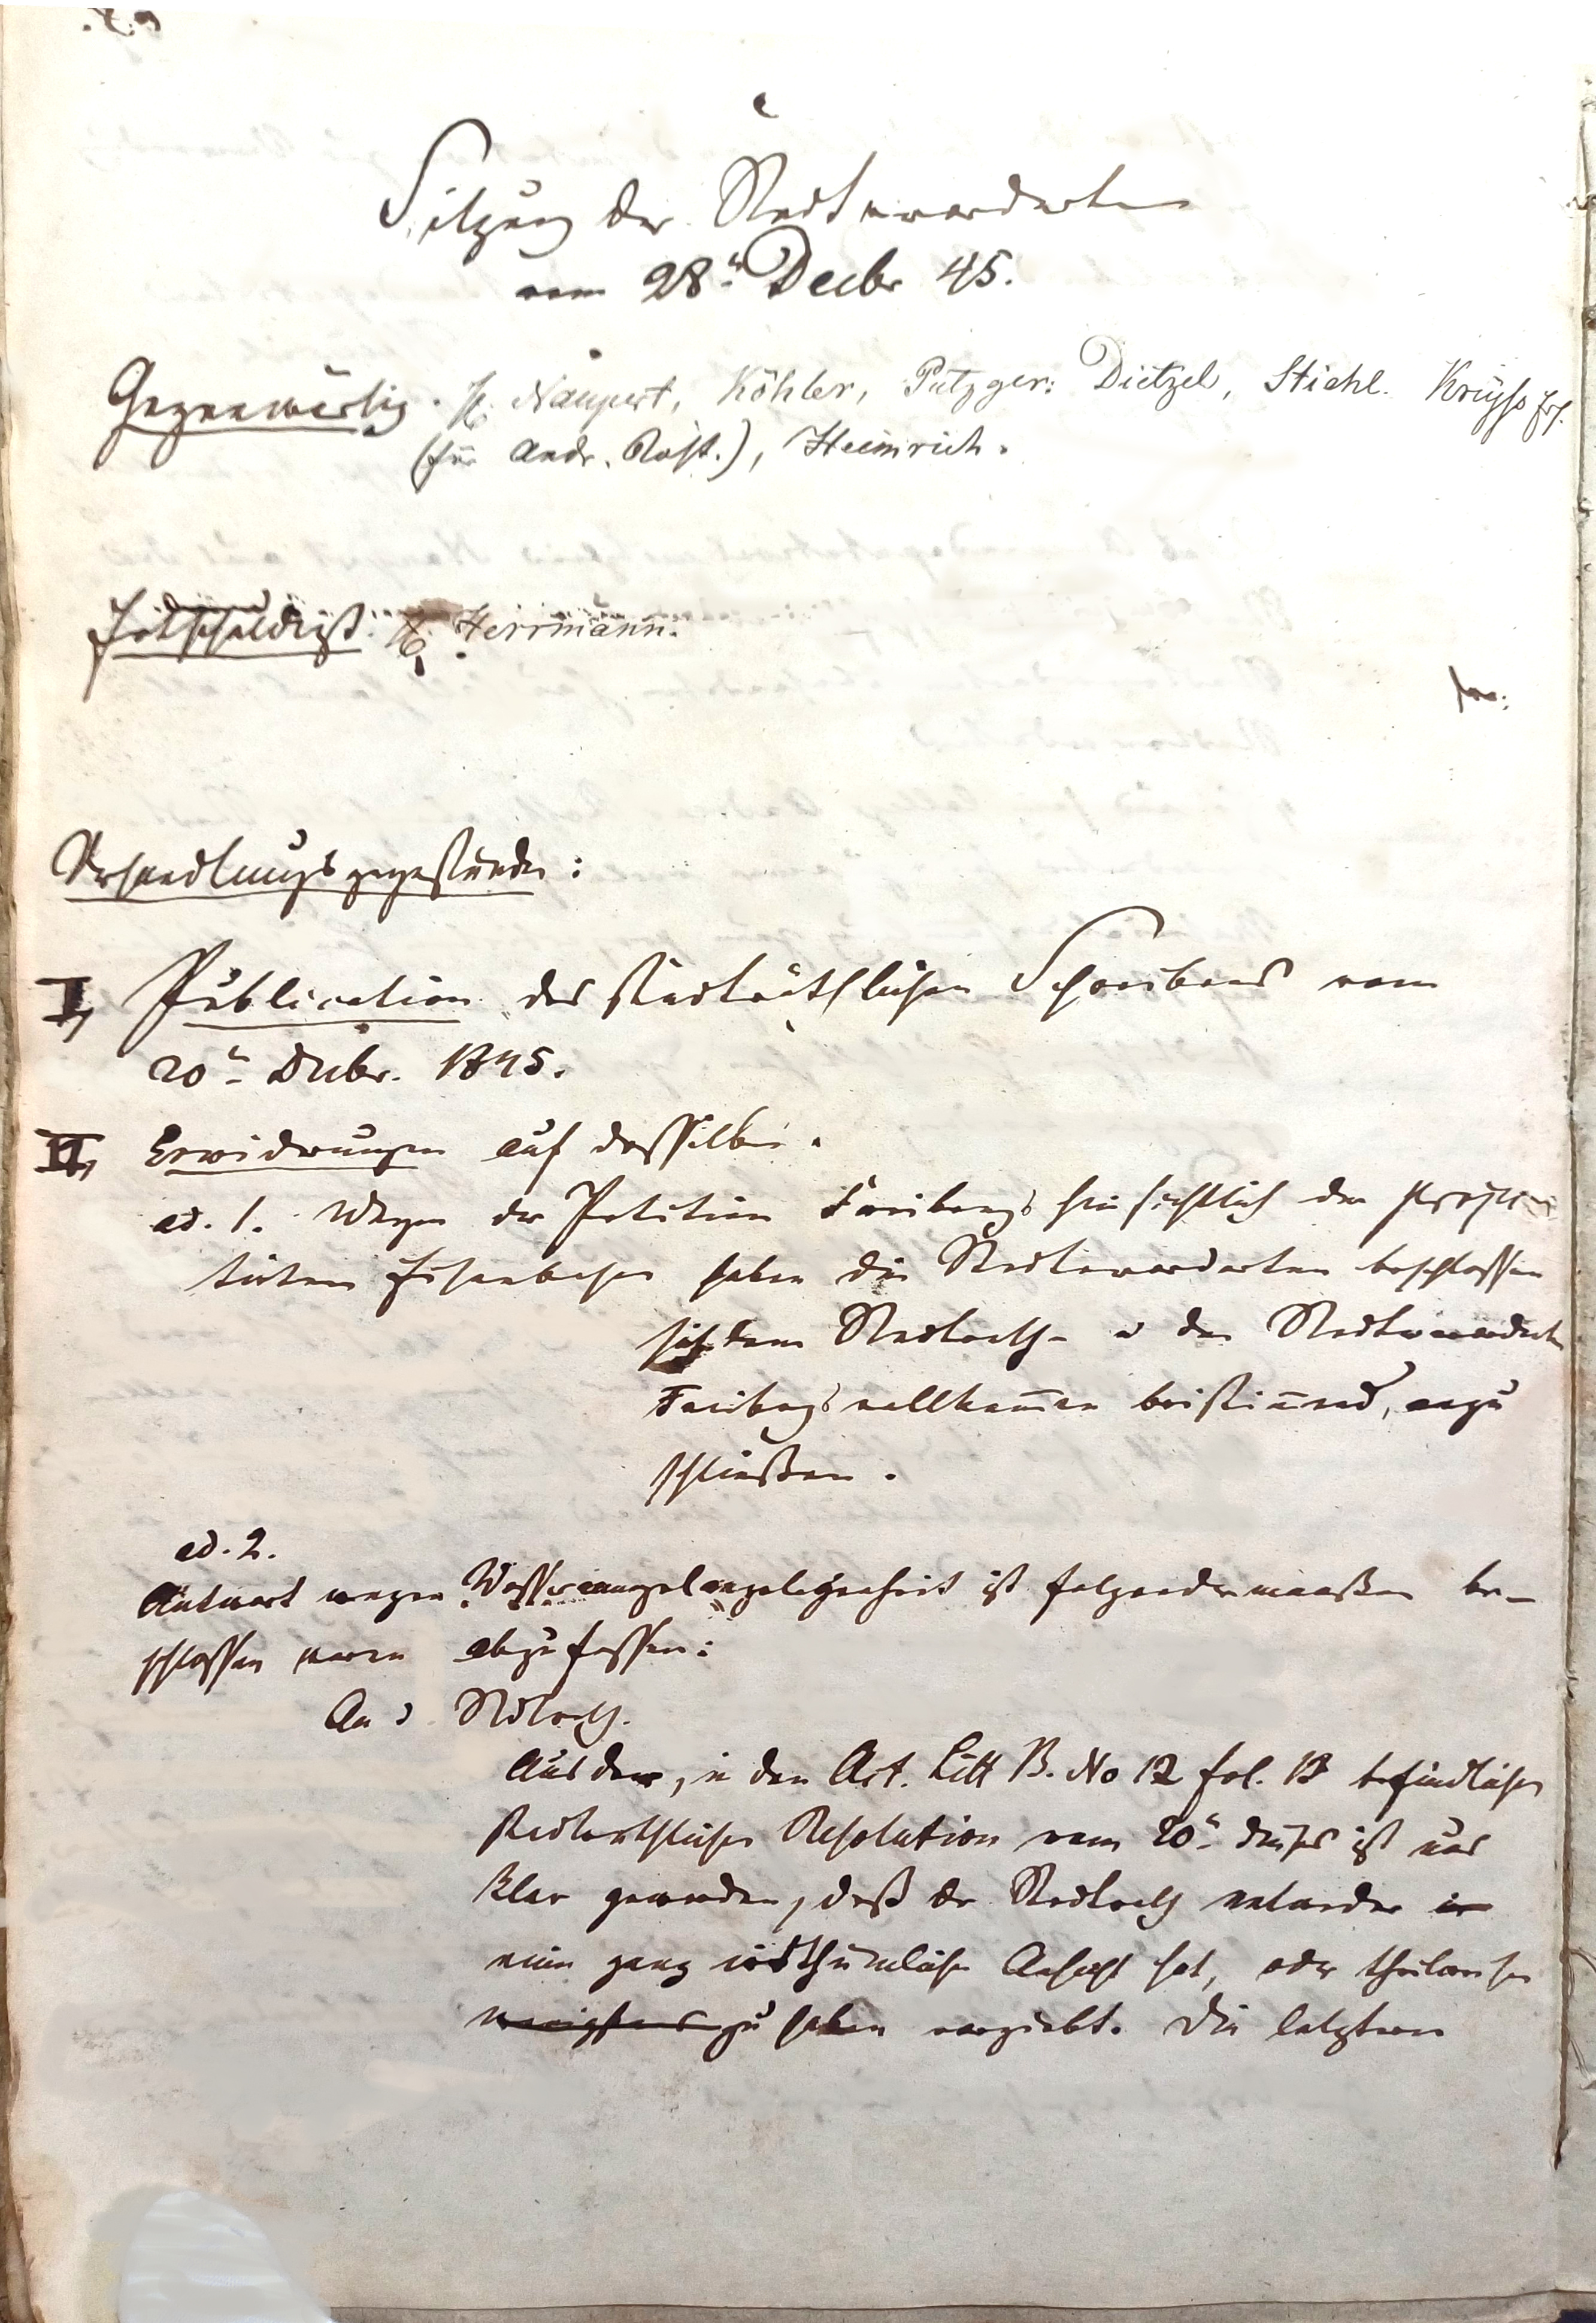 Sitzung der Stadtverordneten
vom 28n. Decbr 45.
Gegenwärtig. H. Naupert, Köhler, Putzger: Dietzel, Stiehl.
(für Andr. Röst.), Heinrich.
Entschuldigt: H. Herrmann.
Verhandlungsgegenstände:
I, Publication des stadträthlichen Schreibens vom
20n. Decbr. 1845.
II, Erwiderungen auf dasselbe.
ad. 1. Wegen der Petition Freibergs hinsichtlich der projec
tirten Eisenbahn haben die Stadtverordneten beschlossen
sich dem Stadtrath- u den Stadtverordneten
Freibergs vollkom̄en beistim̄end, anzu
schließen.
ad. 2.
Antwort wegen Wassermangelangelegenheit ist folgendermaaßen be-
schlossen worden abzufassen:
An d. Stdtrath.
Aus der, in den Act. Litt B. No 12 fol. 13 befindlichen
stadträthlichen Resolution vom 20n. dieses ist uns
klar geworden, daß der Stadtrath entweder in
eine ganz irrthümliche Ansicht hat, oder theilweise
wenigstens zu haben vorgiebt. Die letztern